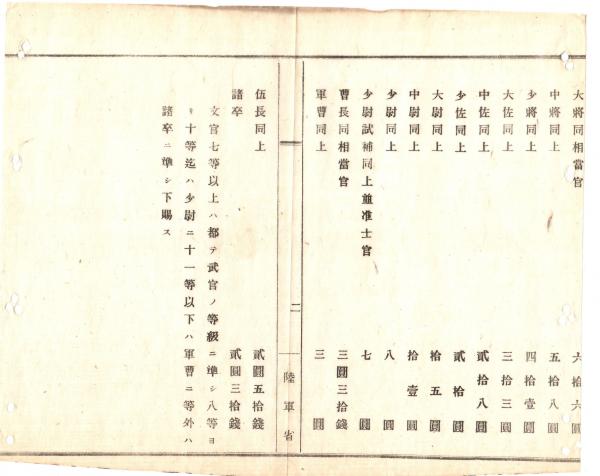 大將同相當官 六拾六圓
中將同上 五拾八圓
少將同上 四拾壹圓
大佐同上 三拾三圓
中佐同上 貳拾八圓
少佐同上 貳拾圓
大尉同上 拾五圓
中尉同上 拾壹圓
少尉同上 八圓
少尉試補同上並准士官 七圓
曹長同相當官 三圓三拾錢
軍曹同上 三圓
二
陸軍省
伍長同上 貳圓五拾錢
諸卒 貳圓三拾錢
文官七等以上ハ都テ武官ノ等級ニ準シ八等ヨ
リ十等迄ハ少尉ニ十一等以下ハ軍曹ニ等外ハ
諸卒ニ準シ下賜ス